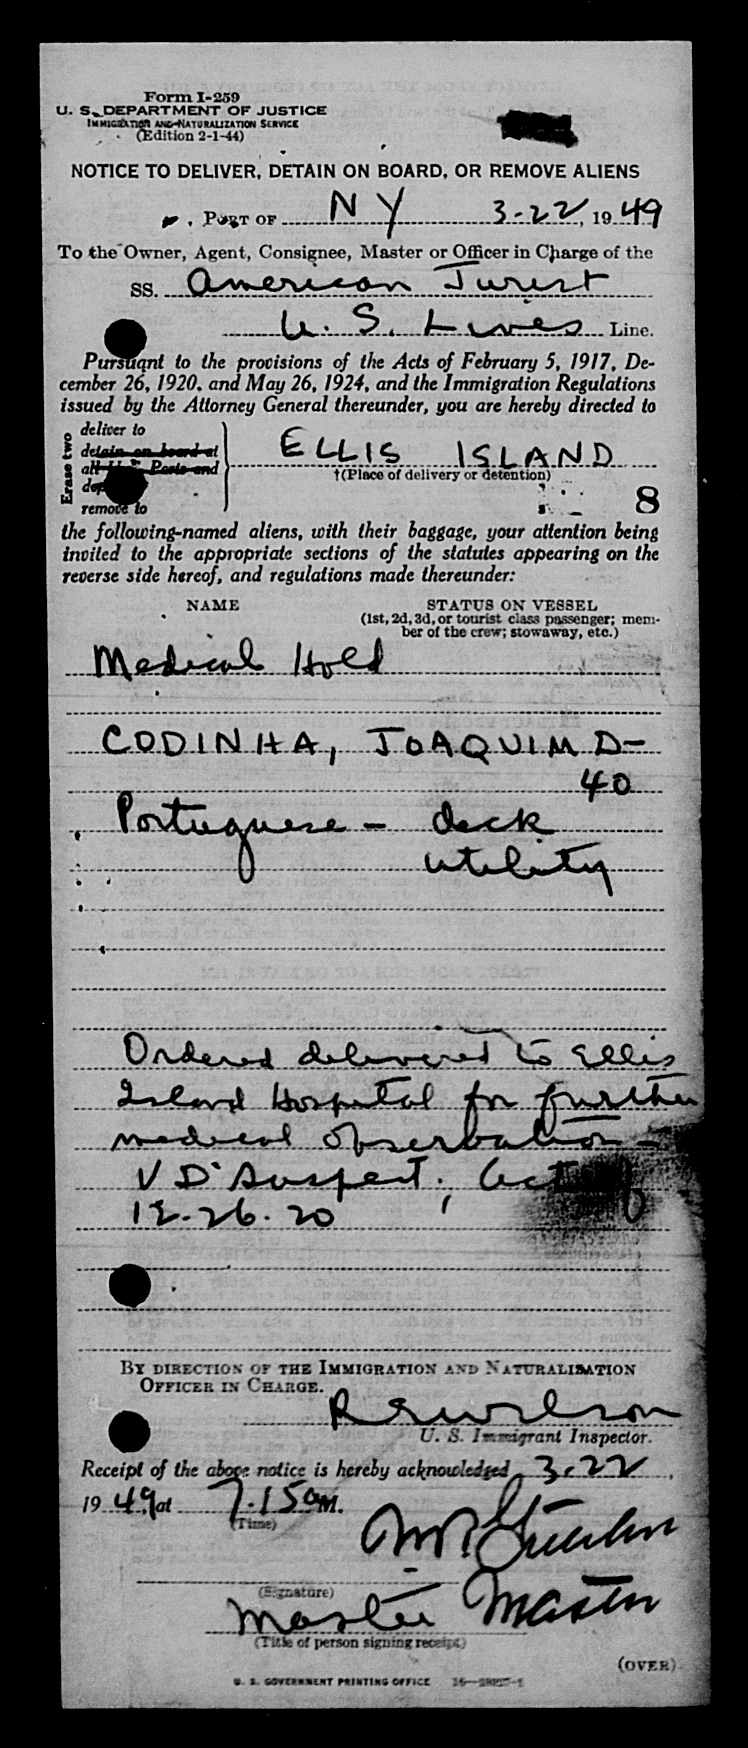 Form I-259
U. S. DEPARTMENT OF JUSTICE
IMMIGRATION AND NATURALIZATION SERVICE
(Edition 2-1-44)
NOTICE TO DELIVER, DETAIN ON BOARD, OR REMOVE ALIENS
PORT OF NY 3-22, 1949
To the Owner, Agent, Consignee, Master or Officer in Charge of the
SS. American Jurist
U. S. Lines Line.
Pursuant to the provisions of the Acts of February 5, 1917, De-
cember 26, 1920, and May 26, 1924, and the Immigration Regulations
issued by the Attorney General thereunder, you are hereby directed to
Erase two
deliver to
detain on board at
all Parts and
remove to
ELLIS ISLAND
†(Place of delivery or detention)
8
the following-named aliens, with their baggage, your attention being
invited to the appropriate sections of the statutes appearing on the
reverse side hereof, and regulations made thereunder:
NAME STATUS ON VESSEL
(1st, 2d, 3d, or tourist class passenger; mem-
ber of the crew; stowaway, etc.)
Medical Hold
CODINHA, JOAQUIM D-
40
Portuguese - deck
utility
Ordered delivered to Ellis
Island Hospital for further
medical observation -
V D Suspect; Act of
12-26-20
BY DIRECTION OF THE IMMIGRATION AND NATURALIZATION
OFFICER IN CHARGE.
R E Wilson
U. S. Immigrant Inspector.
Receipt of the above notice is hereby acknowledged 3-22,
1949, at 7.15 a M.
(Time)
(Signature)
Master Master
(Title of person signing receipt)
(OVER)
U. S. GOVERNMENT PRINTING OFFICE